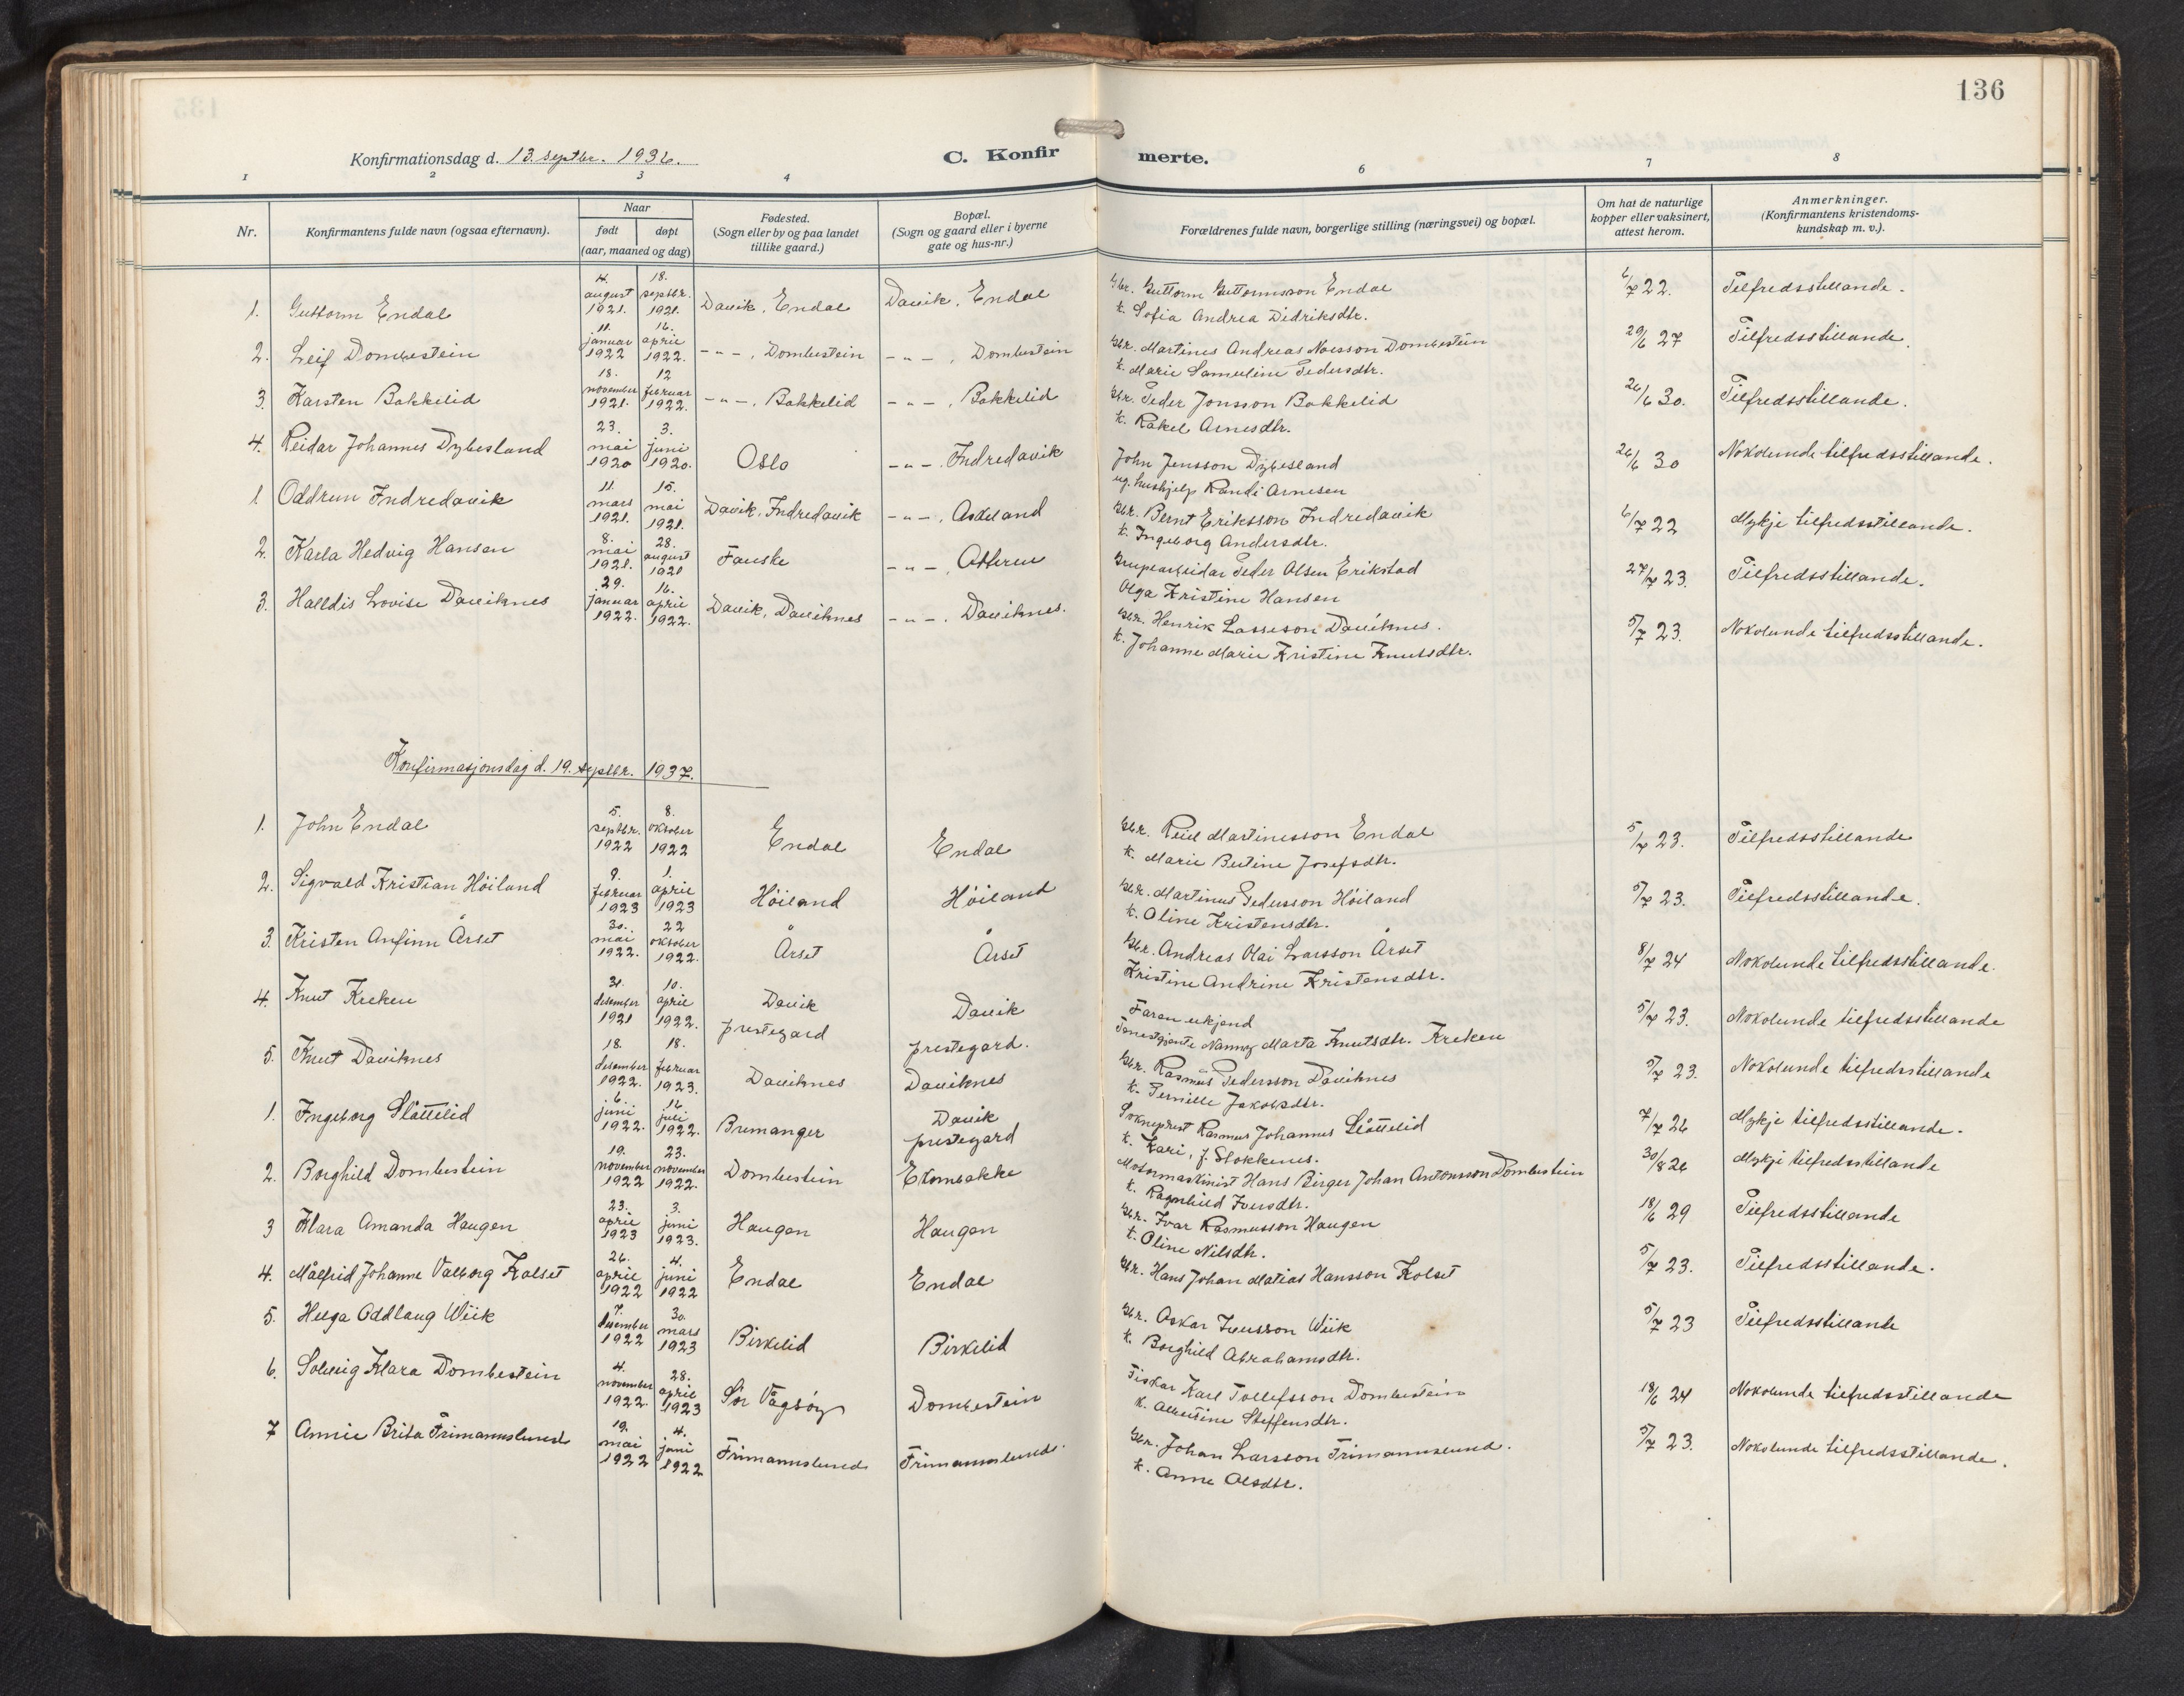 136
Konfirmationsdag d. 13. septbr. 1936.
C. Konfirmerte.
1 2 3 4 6 7 8
Nr.
Konfirmantens fulde navn (ogsaa efternavn).
Naar
født døpt
(aar, maaned og dag)
Fødested.
(Sogn eller by og paa landet
tillike gaard.)
Bopæl.
(Sogn og gaard eller i byerne
gate og hus-nr.)
Forældrenes fulde navn, borgerlige stilling (næringsvei) og bopæl.
Om hat de naturlige
kopper eller vaksinert,
attest herom.
Anmerkninger.
(Konfirmantens kristendoms-
kundskap m. v.).
1. Guttorm Endal 4. august 1921. 18. septbr. 1921. Davik, Endal Davik, Endal
Gbr. Guttorm Guttormsson Endal
k. Sofia Andrea Didriksdtr.
6/7 22. Tilfredsstillande.
2. Leif Dombestein 11. januar 1922 16. april 1922. -"-, Dombestein -"-, Dombestein
Gbr. Martines Andreas Nilsson Dombestein
k. Marie Samueline Pedersdtr.
29/6 27 Tilfredsstillande.
3. Karsten Bakkelid 18. november 1921. 12 februar 1922. -"-, Bakkelid -"-, Bakkelid
Gbr. Peder Jonsson Bakkelid
k. Rakel Arnesdtr.
26/6 30. Tilfredsstillande.
4. Reidar Johannes Dybesland 23. mai 1920 3. juni 1920. Oslo -"-, Indredavik
John Jensson Dybesland
ug. hushjelp Randi Arnesen
26/6 30 Nokolunde tilfredsstillande.
1 Oddrun Indredavik 11. mars 1921. 15. mai 1921. Davik, Indredavik -"-, Askeland
Gbr. Bernt Eriksson Indredavik
k. Ingeborg Andersdtr.
6/7 22 Mykje tilfredsstillande.
2. Karla Hedvig Hansen 8. mai 1921. 28. august 1921 Fauske -"-, Otteren
Grupearbeidar Peder Olsen Erikstad
Olga Kristine Hansen
27/7 23. Tilfredsstillande.
3. Halldis Lovise Daviknes 29. januar 1922. 16. april 1922. Davik, Daviknes -"-, Daviknes.
Gbr. Henrik Lasseson Daviknes.
k. Johanne Marie Kristine Knutsdtr.
5/7 23. Nokolunde tilfredsstillande.
Konfirmasjonsdag d. 19. septbr. 1937.
1. John Endal 5. septbr. 1922 8. oktober 1922 Endal Endal
Gbr. Martinesson Endal
k. Marie Bertine Josefsdtr.
5/7 23. Tilfredsstillande
2. Sigvald Kristian Höiland 9. februar 1923 1. april 1923 Höiland Höiland
Gbr. Martinus Pedersson Höiland
k. Oline Kristensdtr.
5/7 23. Tilfredsstillande.
3. Kristen Anfinn Årset 30. mai 1922. 22 oktober 1922. Årset Årset
Gbr. Andreas Olai Larsson Årset
Kristine Andrine Kristensdtr.
8/7 24 Nokolunde tilfredsstillande.
4. Knut Kreken 31. desember 1921 10. april 1922. Davik prestegard Davik prestegard.
Faren ukjend
Tenestgjente Nanny Marta Knutsdtr. Kreken
5/7 23. Nokolunde tilfredsstillande
5. Knut Daviknes 18. desember 1922. 18. februar 1923. Daviknes Daviknes
Gbr. Rasmus Pedersson Daviknes
k. Pernille Jakobsdtr.
5/7 23. Nokolunde tilfredsstillande
1. Ingeborg Slåttelid 6. juni 1922. 16. juli 1922. Bremanger Davik prestegard
Sokneprest Rasmus Johannes Slåttelid
k. Kari, f. Stokkenes.
7/7 26 Mykje tilfredsstillande.
2. Borghild Dombestein 19. november 1922 23. november 1922. Dombestein Ekornbakke
Motormaskinist Hans Birger Johan Antonsson Dombestein
k. Ragnhild Iversdtr.
30/8 26 Mykje tilfredsstillande
3 Klara Amanda Haugen 23. april 1923 3. juni 1923. Haugen Haugen
Gbr. Ivar Rasmusson Haugen
k. Oline Nilsdtr.
18/6 29 Tilfredsstillande
4. Målfrid Johanne Valborg Kolset 26. april 1922 4. juni 1922 Endal Endal
Gbr. Hans Johan Matias Hansson Kolset
5/7 23. Tilfredsstillande.
5. Helga Oddlaug Wiik 7. desember 1922 30. mars 1923 Birkelid Birkelid
Gbr. Oskar Iversson Wiik
k. Borghild Abrahamsdtr.
5/7 23 Tilfredsstillande
6. Solveig Klara Dombestein 4. november 1922. 28. april 1923 Sör Vågsöy Dombestein
Fiskar Karl Tollefsson Dombestein
k. Albertine Steffensdtr.
18/6 24 Nokolunde tilfredsstillande
7 Annie Brita Frimannslund 19. mai 1922 4. juni 1922 Frimannslund Frimannslund.
Gbr. Johan Larsson Frimannslund.
k. Anne Olsdtr.
5/7 23. Nokolunde tilfredsstillande.